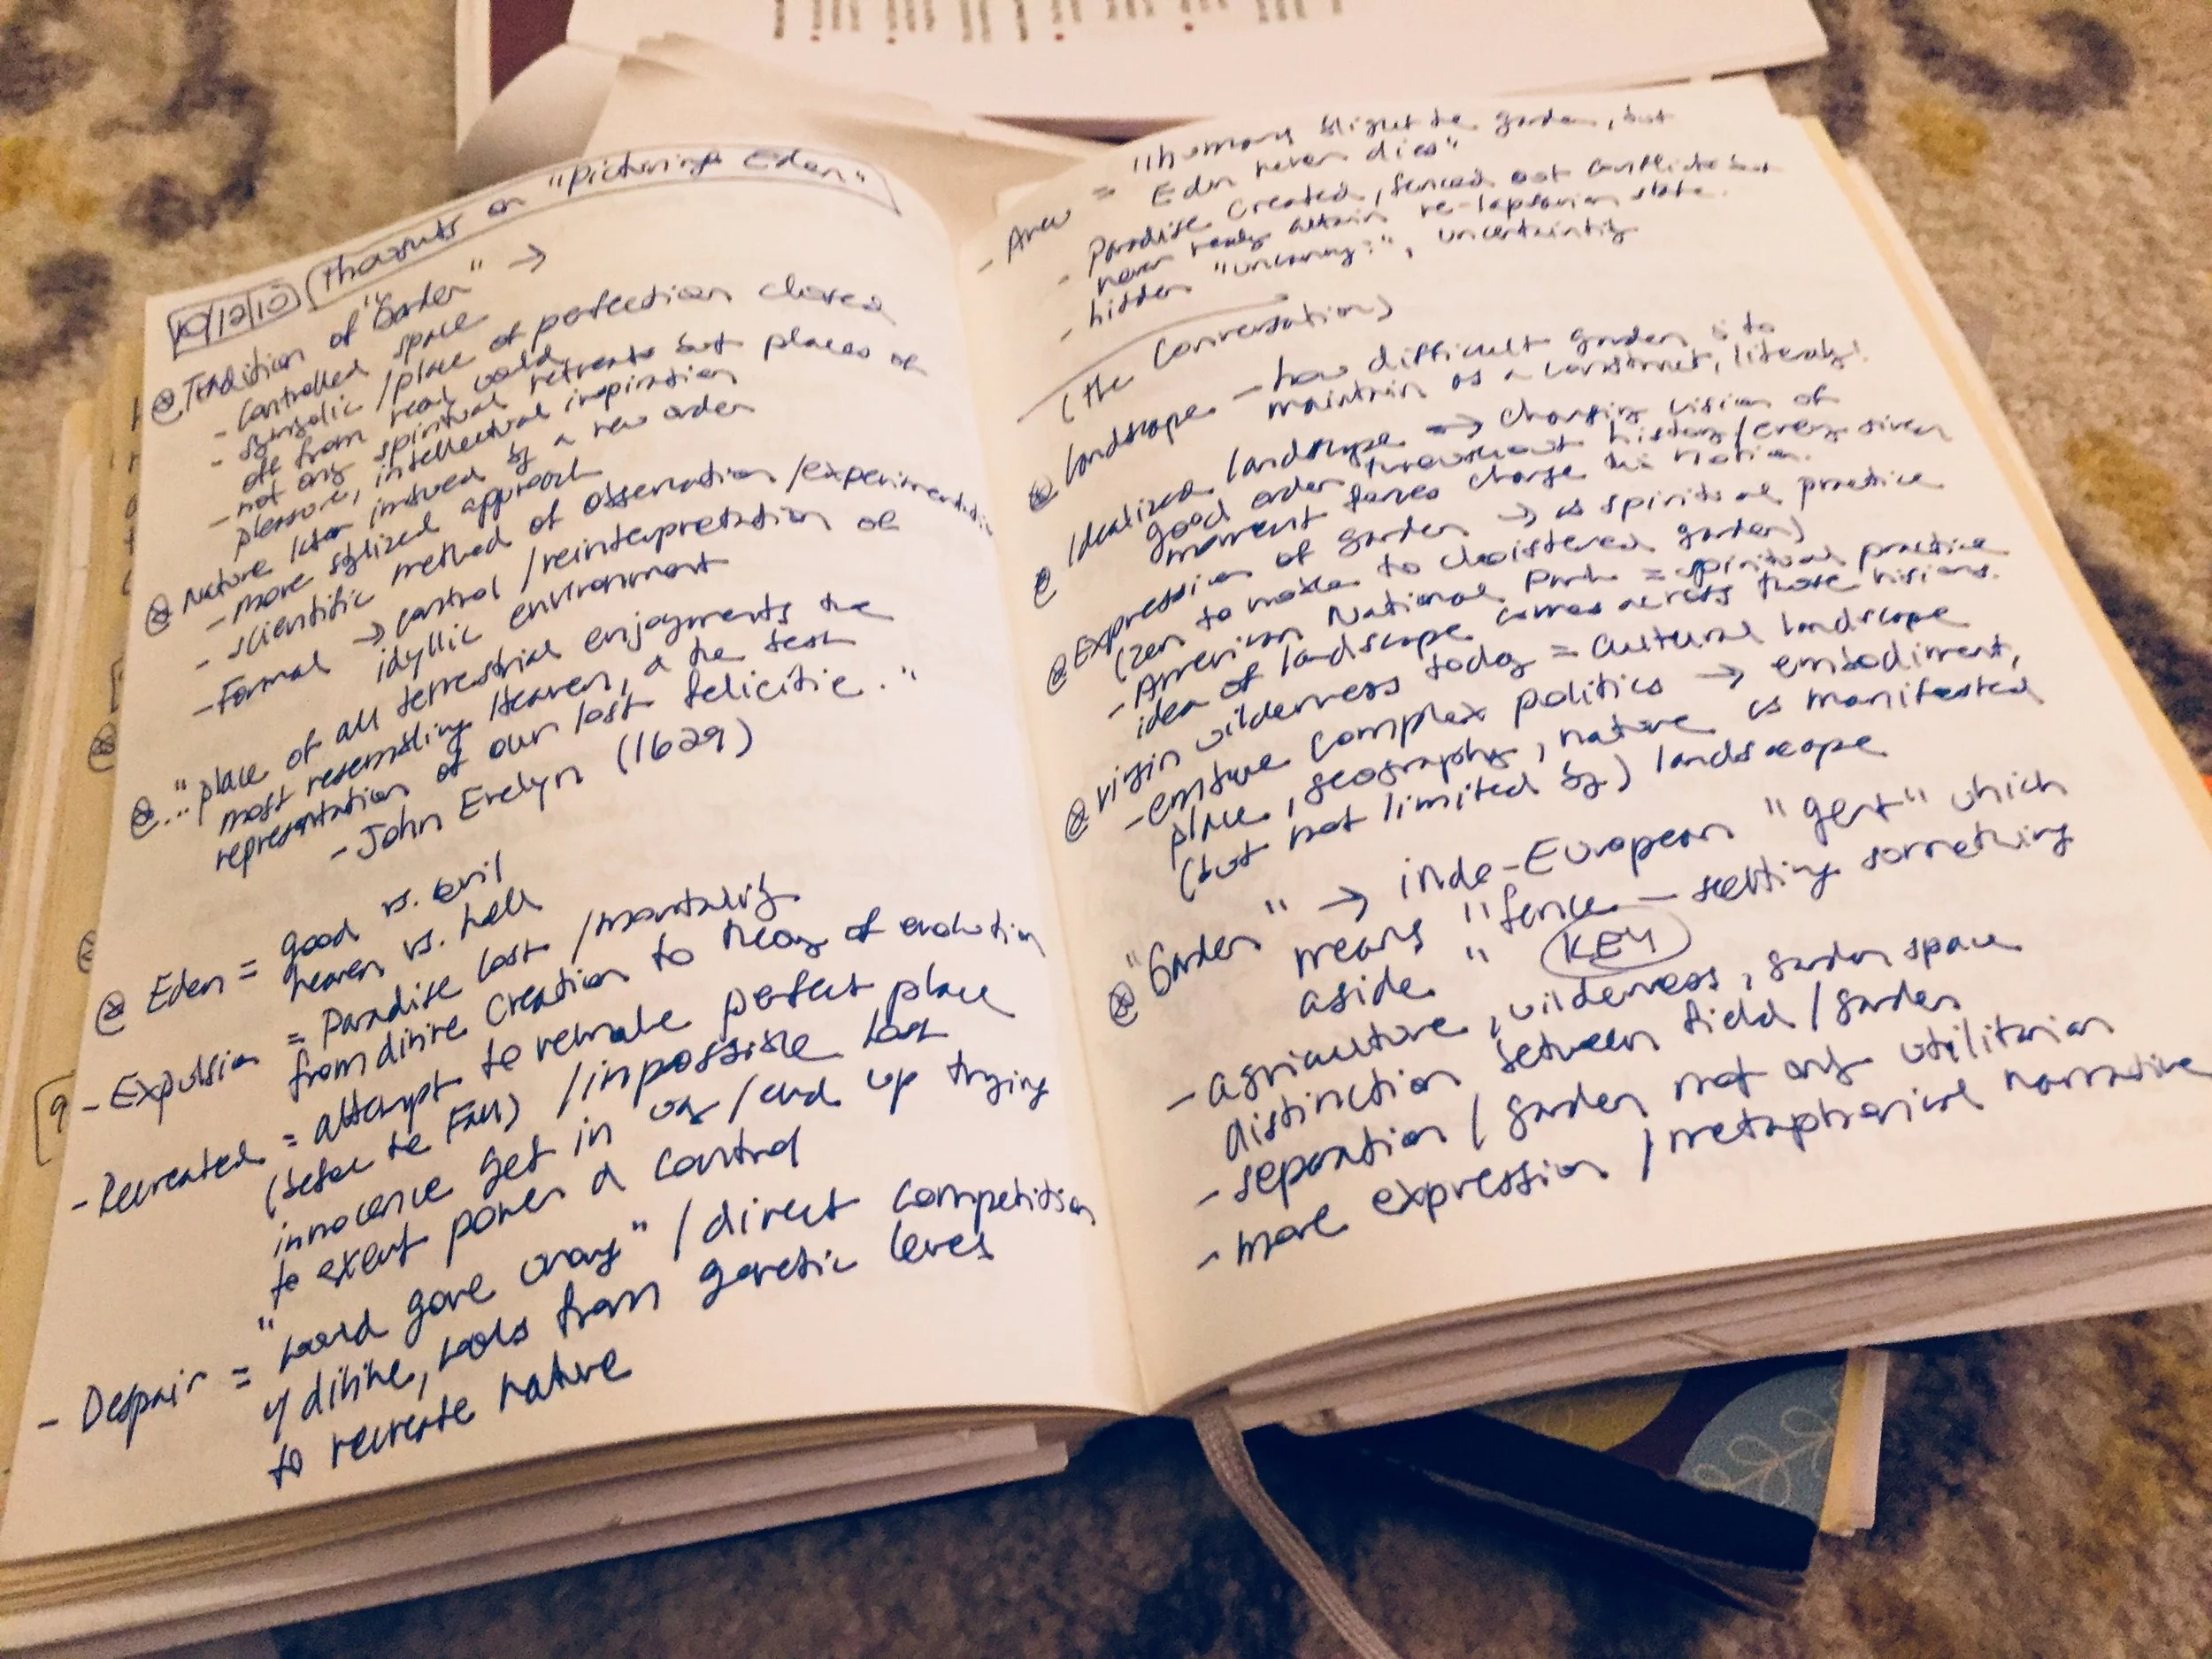 10/12/10 Thoughts on "Picturing Eden"
⊗ Tradition of "Garden" →
- controlled space
- symbolic/place of perfection closed
off from real world
- not only spiritual retreats but places of
pleasure, intellectual inspiration
⊗ Nature later imbued by a new order
- more stylized approach
- scientific method of observation/experimentation
- Formal → control/reinterpretation of
idyllic environment
⊗ ... "place of all terrestrial enjoyments the
most resembling Heaven, & the best
representation of our lost felicitie."
- John Evelyn (1629)
⊗ Eden = good vs. evil
heaven vs. hell
- Expulsion = Paradise lost/mortality
from divine creation to theory of evolution
- Recreated = attempt to remake perfect place
(before the Fall)/impossible lost
innocence get in way/end up trying
to exert power & control
- Despair = "world gone wrong"/direct competition
w/ divine, tools from genetic level
to recreate nature
- Anew = "humans blight the garden, but
Eden never dies"
- Paradise created, fenced out conflicts but
never really attain re-lapsarian state.
- hidden "uncanny:", uncertaintity
(the conversation)
⊗ landscape - how difficult garden is to
maintain as a construct, literally!
⊗ Idealized landscape → changing vision of
good order throughout history/every given
moment forces change this notion.
⊗ Expression of garden → as spiritual practice
(zen to to cloistered garden)
- American National Park = spiritual practice
idea of landscape comes across those visions.
⊗ virgin wilderness today = cultural landscape
- ensure complex politics → embodiment,
place, geography, nature is manifested
(but not limited by) landscape
⊗ "Garden" → indo-European "gent" which
means "fence - setting something
aside" KEY
- agriculture, wilderness, garden space
distinction between field/garden
- separation/garden not only utilitarian
- more expression/metaphorical narrative